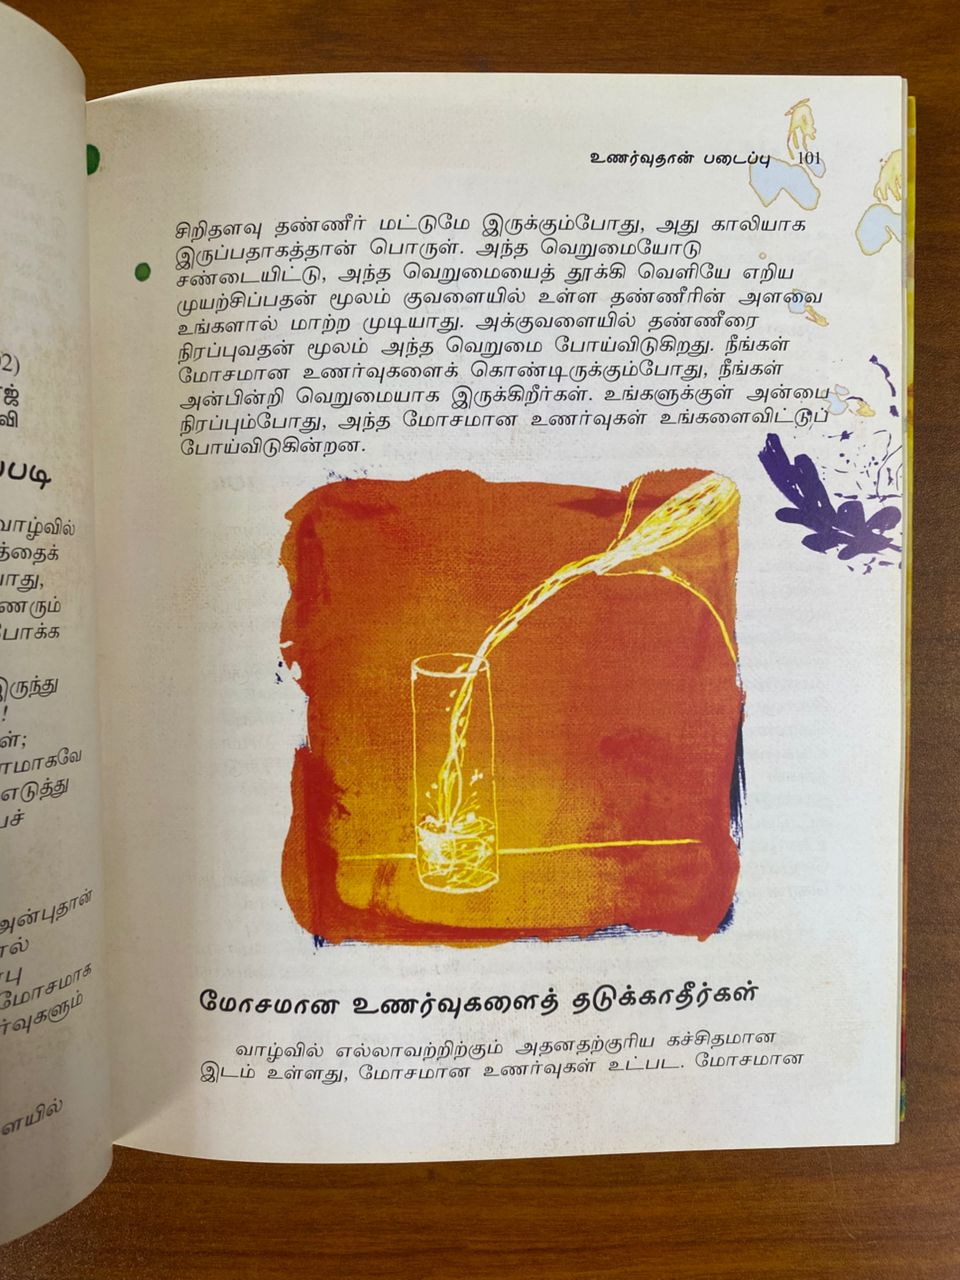 2)
ஜ்
வி
படி
வாழ்வில்
த்தைக்
ணரும்
போக்க
இருந்து
ள்;
எடுத்து
அன்புதான்
ல்
பு
மோசமாக
ர்வுகளும்
உணர்வுதான் படைப்பு 101
சிறிதளவு தண்ணீர் மட்டுமே இருக்கும்போது, அது காலியாக
இருப்பதாகத்தான் பொருள். அந்த வெறுமையோடு
சண்டையிட்டு, அந்த வெறுமையைத் தூக்கி வெளியே எறிய
முயற்சிப்பதன் மூலம் குவளையில் உள்ள தண்ணீரின் அளவை
உங்களால் மாற்ற முடியாது. அக்குவளையில் தண்ணீரை
நிரப்புவதன் மூலம் அந்த வெறுமை போய்விடுகிறது. நீங்கள்
மோசமான உணர்வுகளைக் கொண்டிருக்கும்போது, நீங்கள்
அன்பின்றி வெறுமையாக இருக்கிறீர்கள். உங்களுக்குள் அன்பை
நிரப்பும்போது, அந்த மோசமான உணர்வுகள் உங்களைவிட்டுப்
போய்விடுகின்றன.
மோசமான உணர்வுகளைத் தடுக்காதீர்கள்
வாழ்வில் எல்லாவற்றிற்கும் அதனதற்குரிய கச்சிதமான
இடம் உள்ளது, மோசமான உணர்வுகள் உட்பட. மோசமான